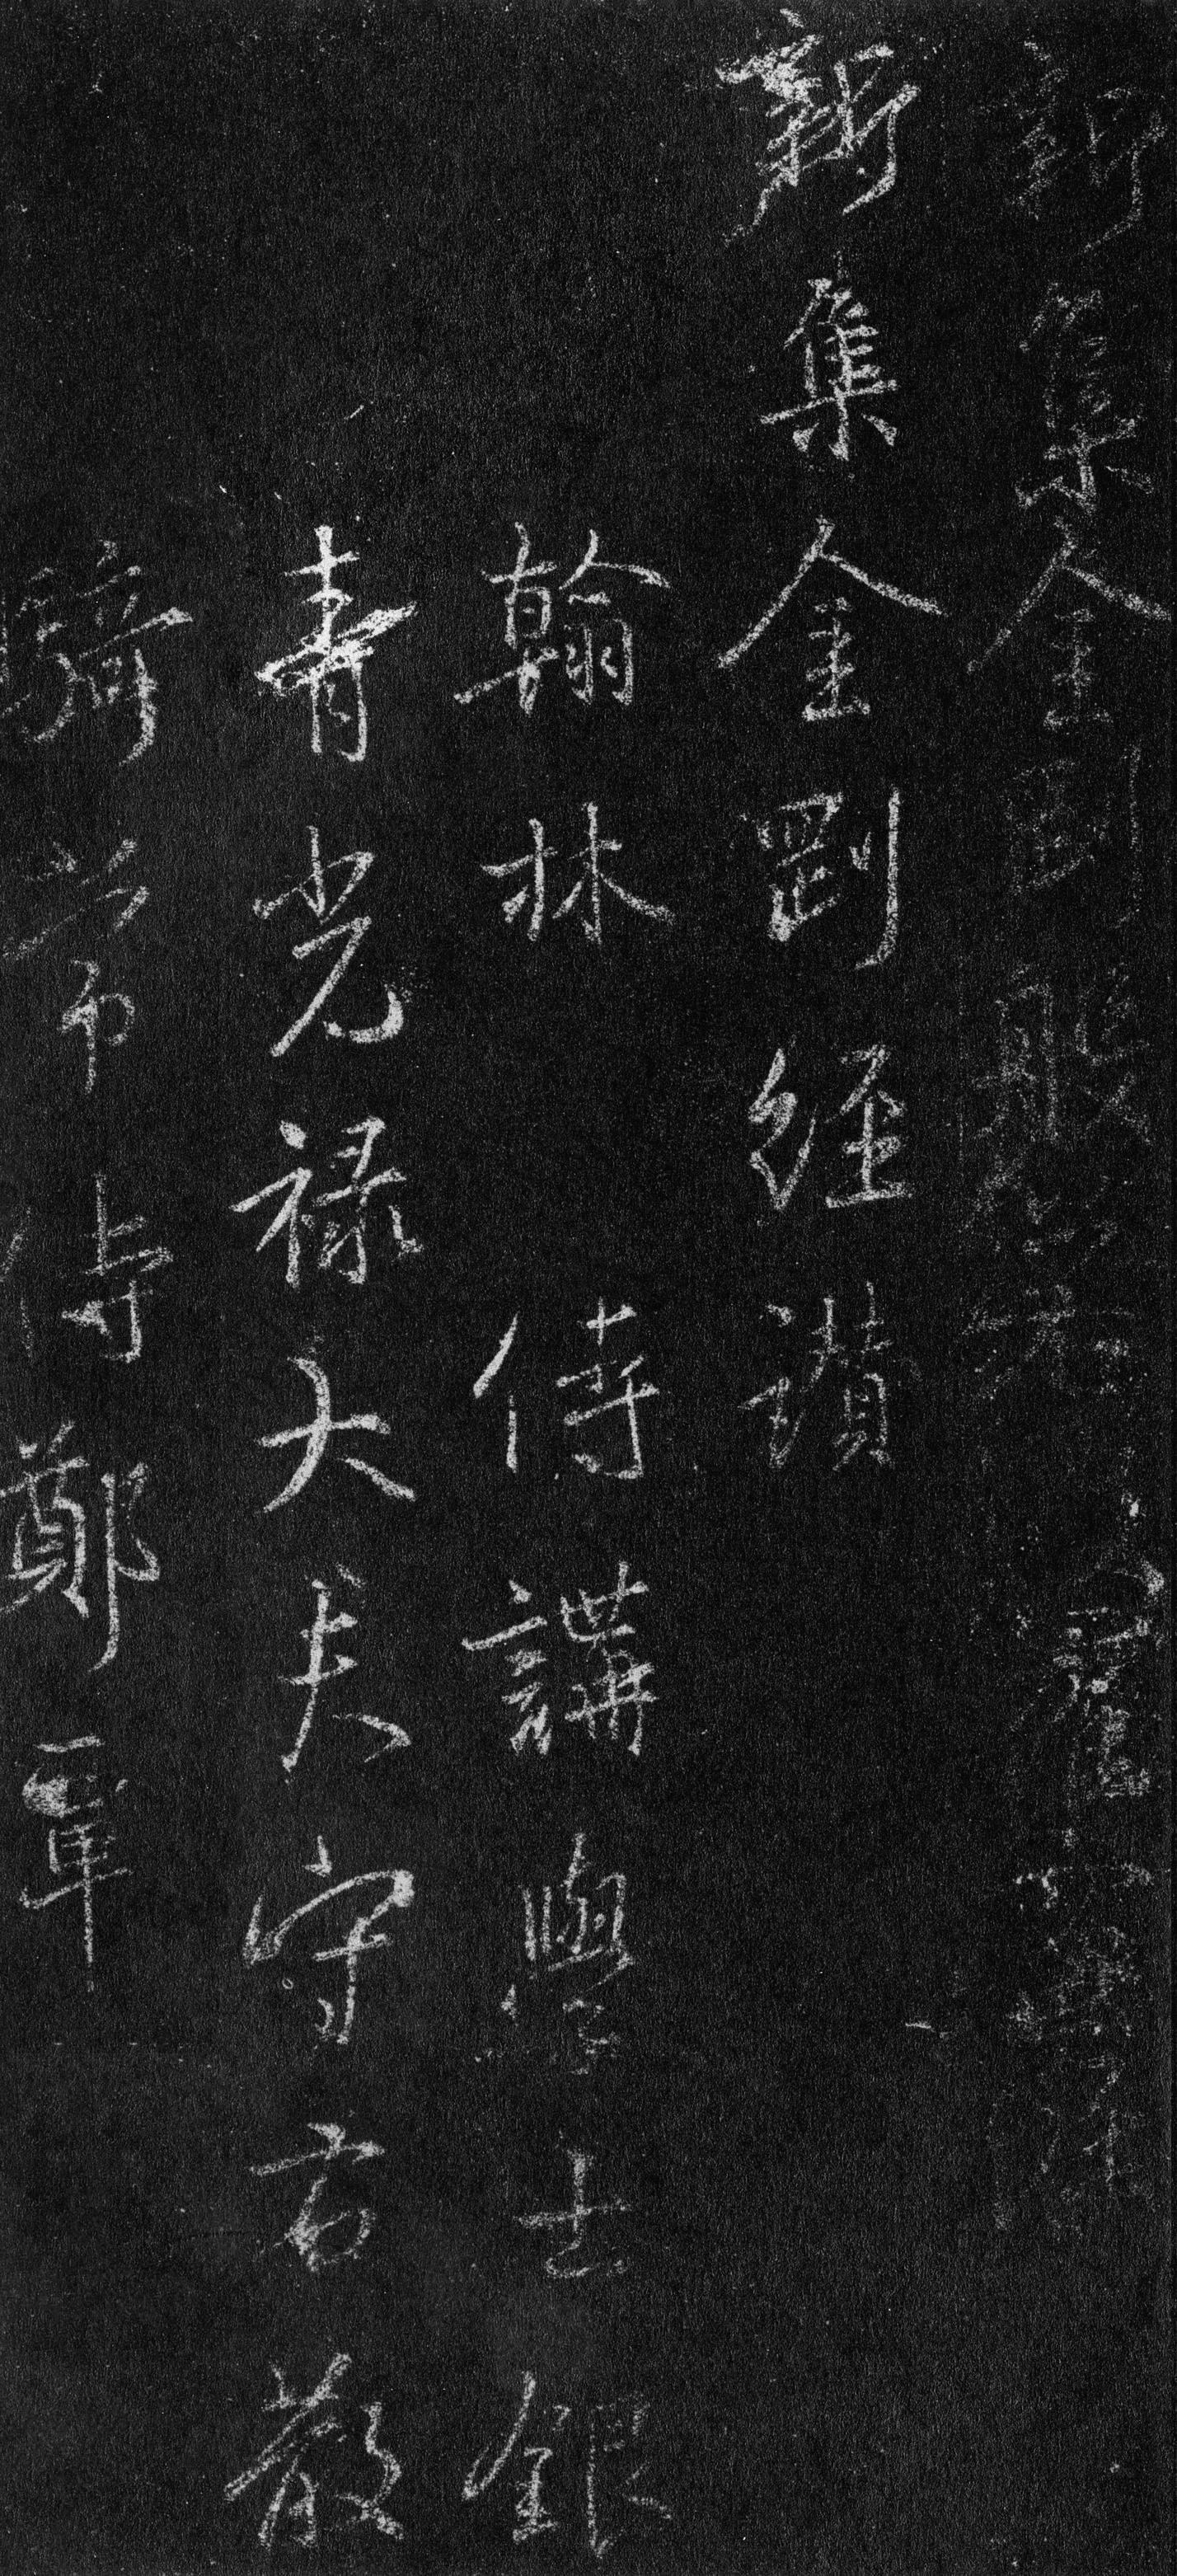 新集金剛般若
新集金剛經讃
翰林 侍講學士銀
青光禄大夫守右散
騎常侍鄭覃